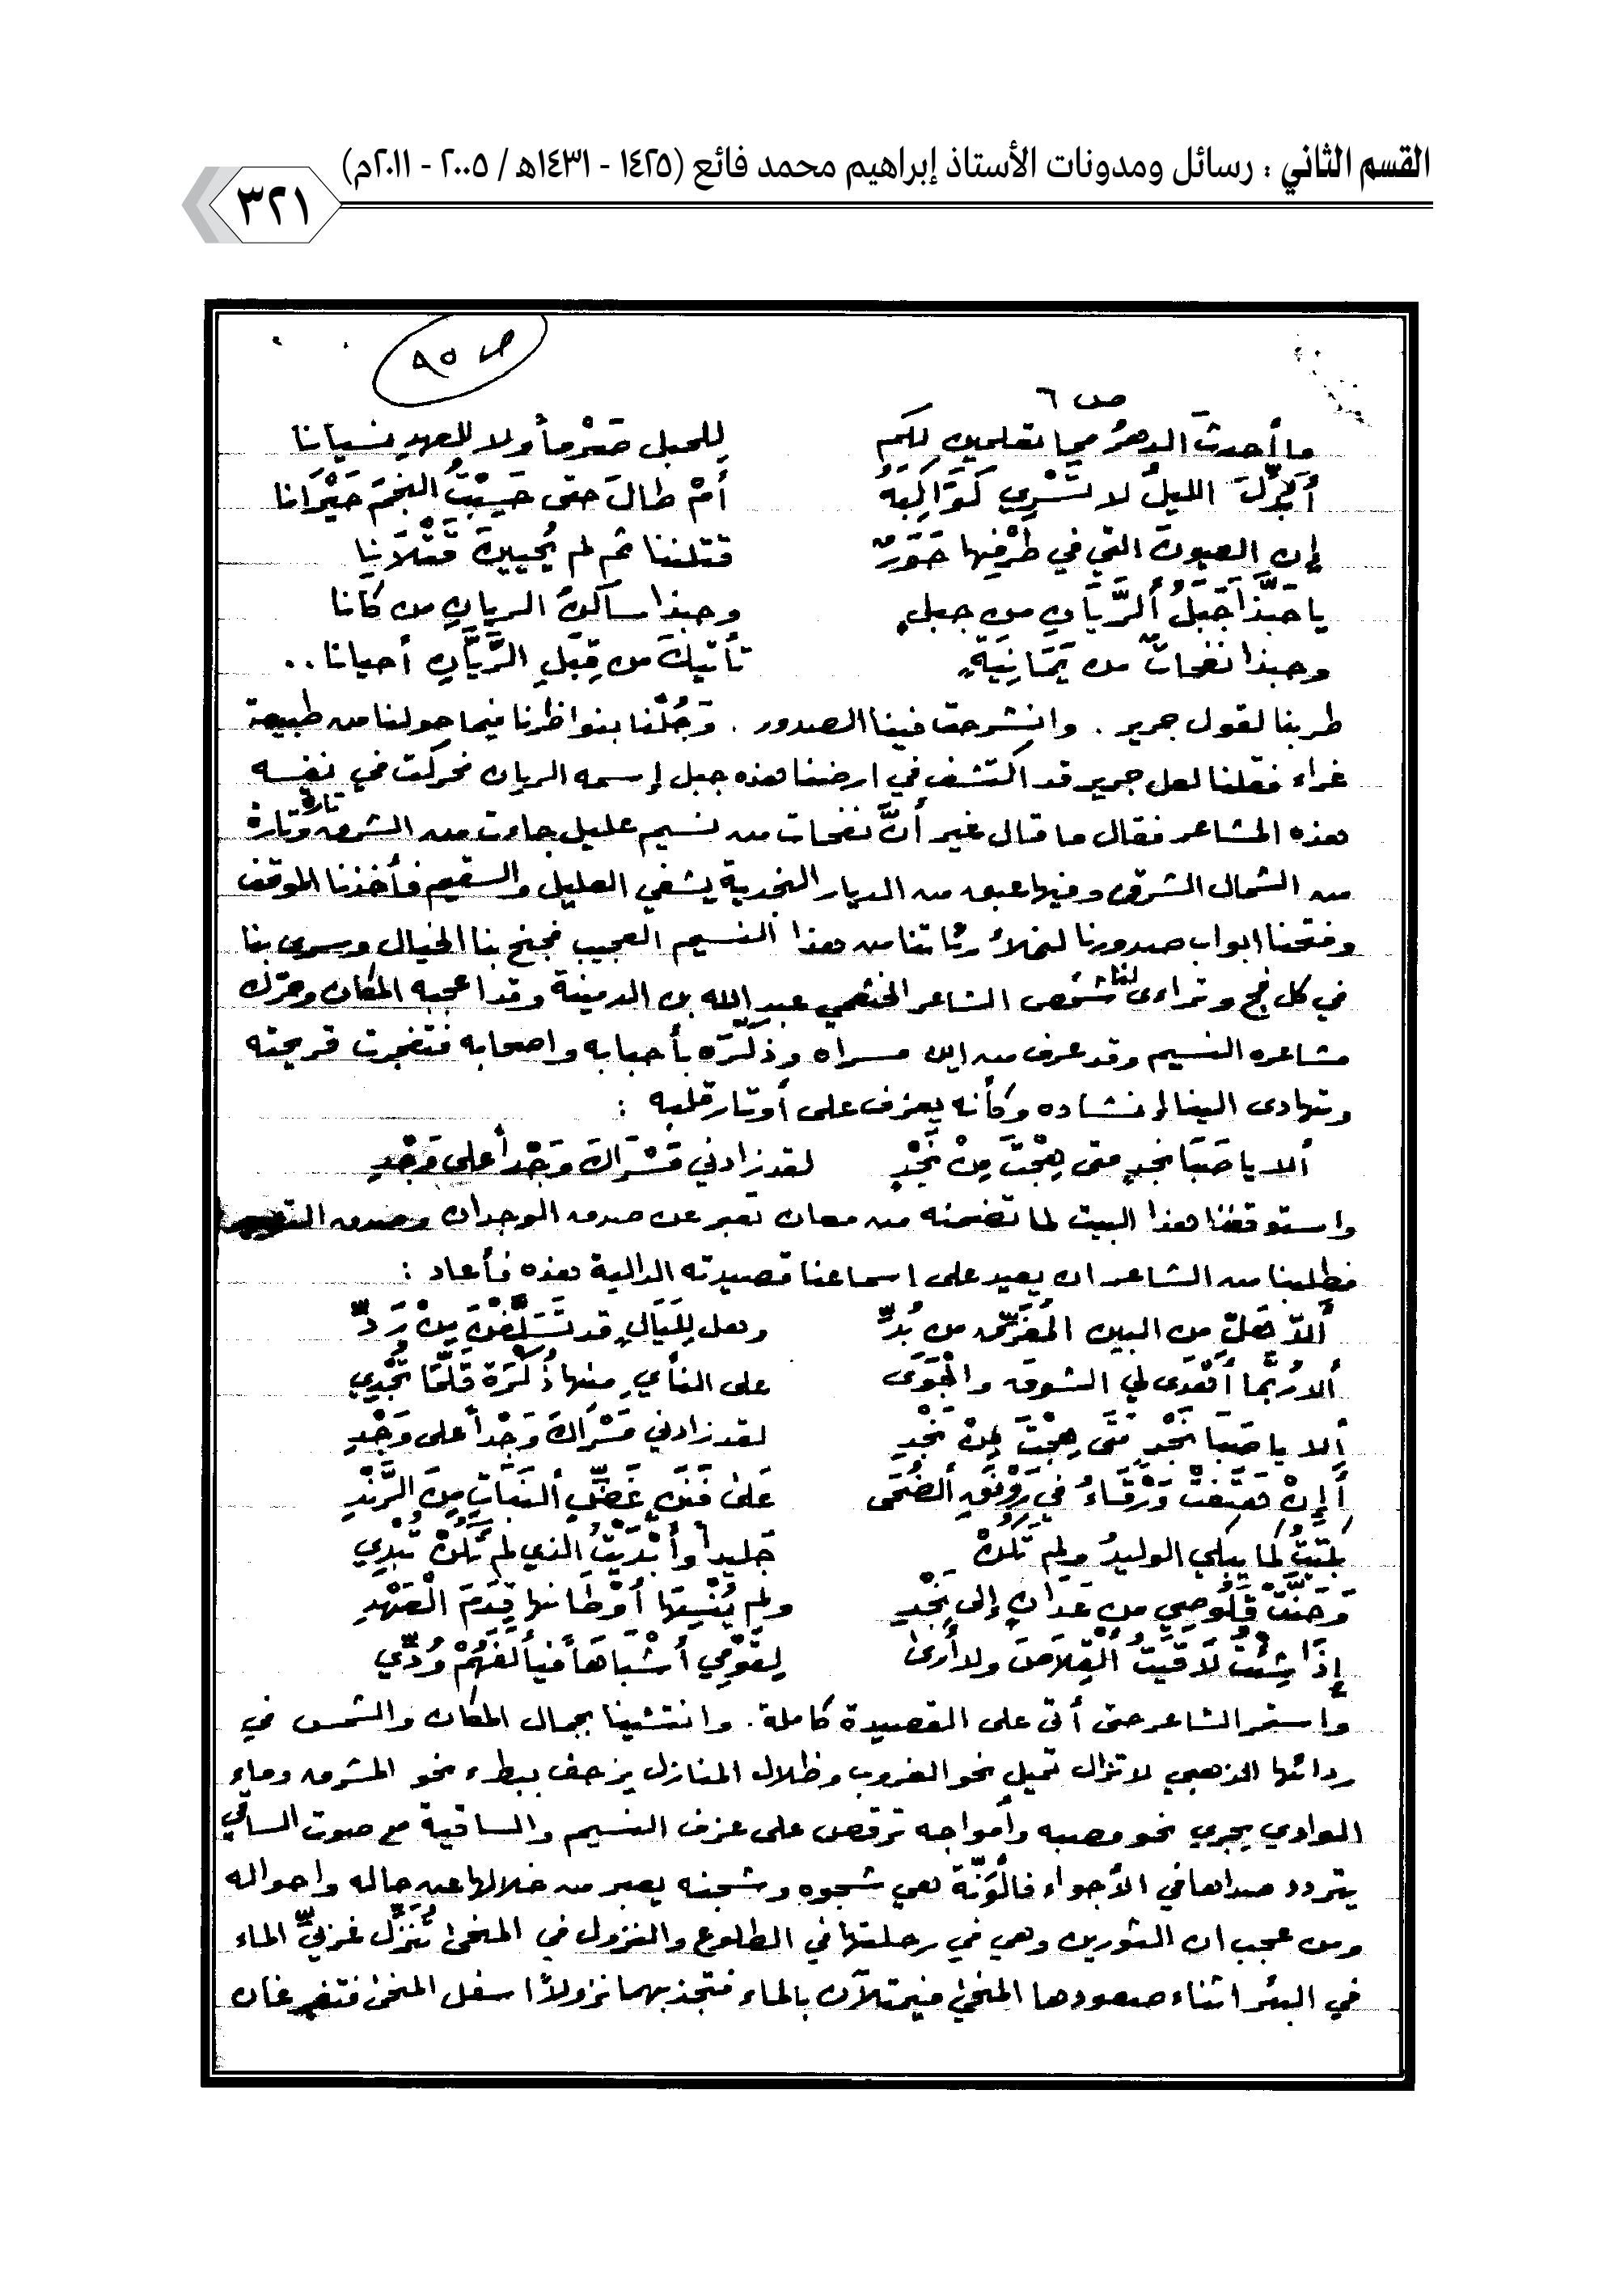 القسم الثاني : رسائل ومدونات الأستاذ إبراهيم محمد فائع (١٤٢٥ - ١٤٣١هـ / ٢٠٠٥ - ٢٠١١م)
٣٢١
ص ٩٥
ص ٦
ما أحدثَ الدهرُ مما تعلمين لكم للحبل صَرْماً ولا للعهد نسيانا
أَبُدِّلَ الليلُ لا تَسْرِي كَوَاكِبَهُ أمْ طالَ حتى حَسِبْتُ النجمَ حَيْرَانا
إن العيونَ التي في طَرْفِها حَوَرٌ قتلننا ثم لم يُحيينَ قَتْلَانا
يا حَبَّذَا جَبَلُ ألرَّيَّانِ من جبلٍ وحبذا ساكنُ الريانِ من كانا
وحبذا نفحاتٌ من يَمَانِيَةٍ تأتيكَ من قِبَلِ الرَّيَّانِ أحيانا ..
طربنا لقول جرير . وانشرحت فينا الصدور . وَجُلْنا بنواظرنا فيما حولنا من طبيعة
غراء فقلنا لعل جرير قد اكتشف في ارضنا هذه جبل إسمه الريان فحركت في نفسه
هذه المشاعر فقال ما قال غير أنَّ نفحات من نسيم عليل جاءت من الشرق تارة وتارة
من الشمال الشرقي وفيها عبق من الديار النجدية يشفي العليل والسقيم فأخذنا الموقف
وفتحنا ابواب صدورنا لنملأ رئاتنا من هذا النسيم العجيب فجنح بنا الخيال وسرى بنا
في كل فج وتراءى لنا شخص الشاعر الخثعمي عبد الله بن الدمينة وقد اعجبه المكان وحرّك
مشاعره النسيم وقد عرف من اين مسراه وذكَّرَه بأحبابه واصحابه فتفجرت قريحته
وتهادى الينا إنشاده وكأنه يعزف على أوتار قلبه :
ألا يا صَبَا نجدٍ متى هِجْتَ مِنْ نَجْدٍ لقد زادني مَسْرَاكَ وَجْداً على وَجْدِ
واستوقفنا هذا البيت لما تضمنه من معان تعبر عن صدق الوجدان وصدق
فطلبنا من الشاعر ان يعيد على اسماعنا قصيدته الدالية هذه فأعاد :
ألا هَلْ من البين المُفَرِّق من بُدٍّ وهل لِلَيَالٍ قد تَسَلَّفْنَ مِنْ رَدٍّ
ألا رُبَّما أهْدَى لي الشوق والجَوَى على النأي منها ذُكْرَة قَلَّمَا تُجْدِي
ألا يا صَبَا نَجْدٍ مَتَى هِجْتَ مِنْ نَجْدِ لقد زادني مَسْرَاكَ وَجْداً على وَجْدِ
أَإِنْ هَتَفَتْ وَرْقَاءُ في رَوْنَقِ ألضُحَى عَلىٰ فَنَنٍ غَضِّ ألنَبَاتِ مِنَ الرَّنْدِ
بَكَيْتُ كما يبكي الوليدُ ولم تَكُنْ جَليداً وأَبْدَيْتُ الذي لم تَكُنْ تُبْدِي
وَحَنَّتْ قَلُوصِي من عَدَانٍ إلى نَجْدِ ولم يُنْسِهَا أوْطَانها قِدَمَ الْعَهْدِ
إذَا شِئْتُ لَاقَيْتُ ألْقِلَاصَ ولا أرىٰ لِقَوْمِي أشْبَاهَاً فيألفهُمْ وُدِّي
واستمر الشاعر حتى أتى على القصيدة كاملة . وانتشينا بجمال المكان والشمس في
ردائها الذهبي لا تزال تميل نحو الغروب وظلال المنازل يزحف ببطء نحو المشرق وماء
الوادي يجري نحو مصبه وأمواجه ترقص على عزف النسيم والساقية مع صوت الساقي
يتردد صداها في الأجواء فالوَنّة هي شجوه وشجنه يعبر من خلالها عن حاله واحواله
ومن عجب ان الثورين وهي في رحلتها في الطلوع والنزول في المنحىٰ تُنَزِّل غربيِّ الماء
في البئر اثناء صعودها المنحىٰ فيمتلآن بالماء فتجذبهما نزولاً اسفل المنحىٰ فتفرغان